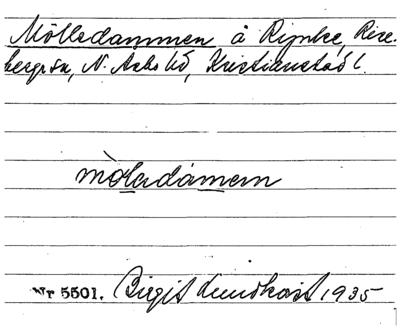 Mölledammen å Rynke, Rise-
bergs sn, N. Åsbo hd, Kristianstads l.
mòledámem
Nr 5501. Birgit Lundkvist 1935